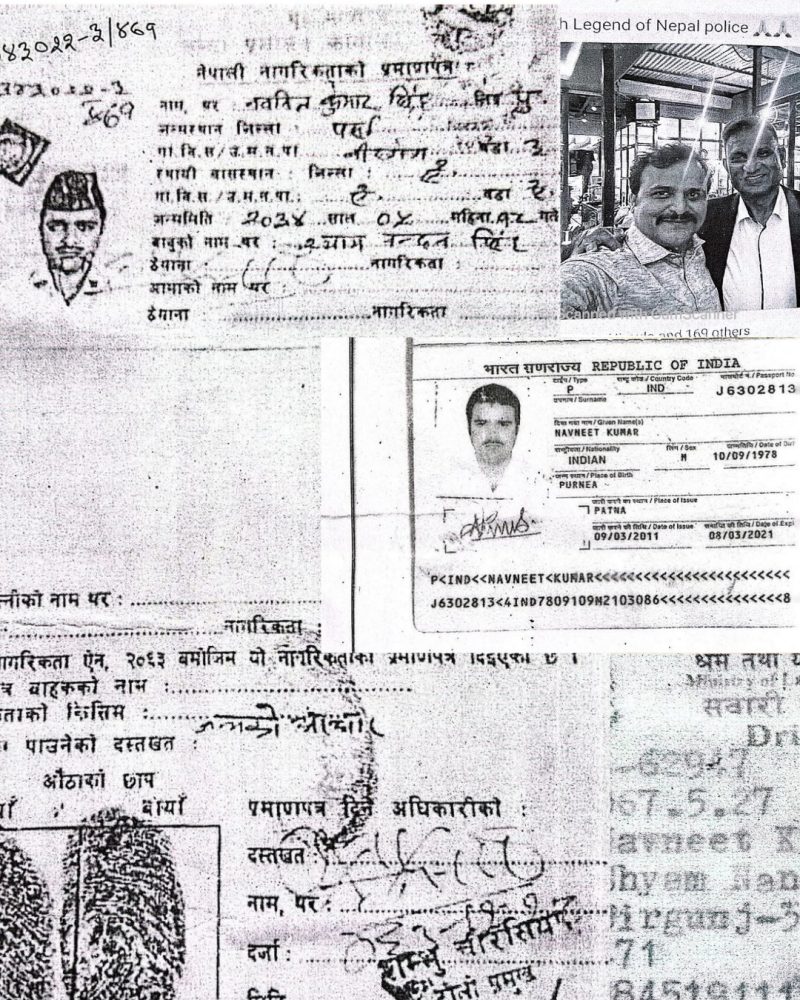 483022-3/469
469
नेपाली नागरिकताको प्रमाणपत्र
नाम, थर : नवनित कुमार सिंह लिङ्ग पु.
जन्मस्थान जिल्ला : पर्सा
गा.वि.स/उ.म.न.पा वीरगंज वडा ३
स्थायी बासस्थान : जिल्ला : ऐ.
गा.वि.स./उ.म.न.पा.: ऐ. वडा ऐ.
जन्ममिति : २०३४ साल ०४ महिना १२ गते
बाबुको नाम थर : श्याम नन्दन सिंह
ठेगाना नागरिकता :
आमाको नाम थर :
ठेगाना : नागरिकता
h Legend of Nepal police 🙏🙏
Scanned with CamScanner
and 169 others
भारत गणराज्य REPUBLIC OF INDIA
टाईप / Type राष्ट्र कोड / Country Code पासपोर्ट नं. / Passport No
P IND J6302813
उपनाम / Surname
दिया गया नाम / Given Name(s)
NAVNEET KUMAR
राष्ट्रीयता / Nationality लिंग / Sex जन्मतिथि / Date of Bir
INDIAN M 10/09/1978
जन्म स्थान / Place of Birth
PURNEA
जारी करने का स्थान / Place of Issue
PATNA
जारी करने की तिथि / Date of Issue समाप्ति की तिथि / Date of Expi
09/03/2011 08/03/2021
P<IND<<NAVNEET<KUMAR<<<<<<<<<<<<<<<<<<<<<<<<
J6302813<4IND7809109M2103086<<<<<<<<<<<<<<8
नीको नाम थर :
नागरिकता :
नागरिकता ऐन, २०६३ बमोजिम यो नागरिकताको प्रमाणपत्र दिइएको छ ।
त्र बाहकको नाम :
ताको किसिम : जन्मको आधार
पाउनेको दस्तखत :
औंठाको छाप
बायाँ
प्रमाणपत्र दिने अधिकारीको :
दस्तखत :
नाम, थर :
दर्जा :
शम्भु चौरसिया
टोली प्रमुख
मिति
श्रम तथा य
Ministry of La
सवारी
Dri
-62947
067.5.27
Navneet K
Shyam Nan
Birgunj-3
71
84519111